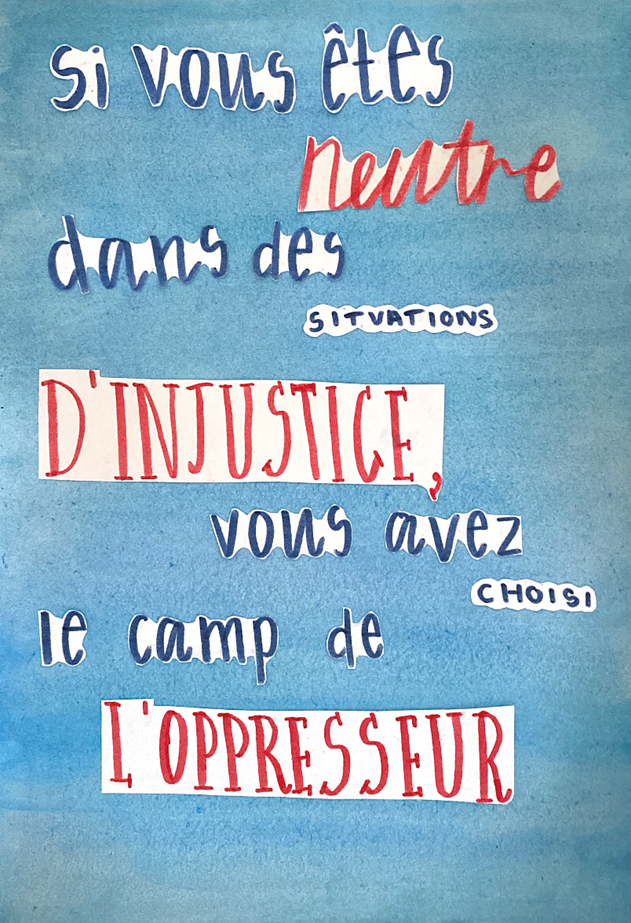 si vous êtes
neutre
dans des
SITUATIONS
D'INJUSTICE,
vous avez
CHOISI
le camp de
L'OPPRESSEUR